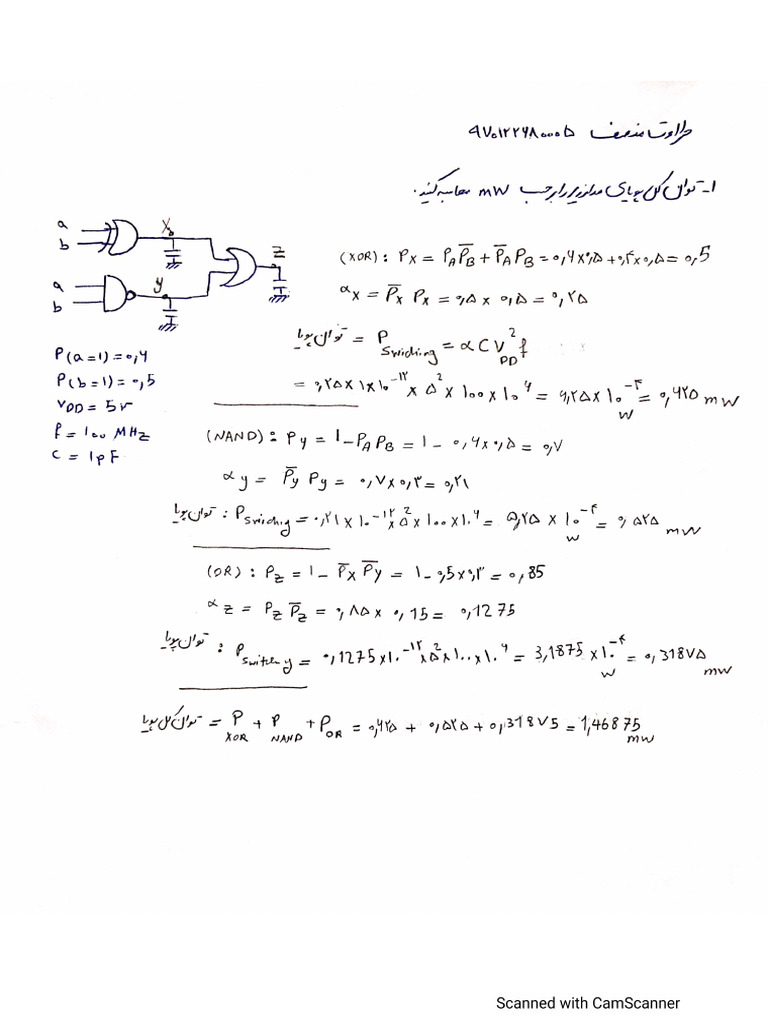 طراوت منصف ۹۷۰۱۲۲۶۸۰۰۰۵
۱- توان کل پویای مدار زیر را برحسب mW محاسبه کنید.
a
b
X
a
b
y
Z
P(a=1)=۰,۶
P(b=1)=۰,5
VDD = 5v
f = 1۰۰ MHz
C = 1pF
(XOR): Px = PA P̅B + P̅A PB = ۰,۶×۰,۵ + ۰,۴×۰,۵ = ۰,5
αx = P̅x Px = ۰,۵ × ۰,۵ = ۰,۲۵
توان پویا = P Swiching = α C V²DD f
= ۰,۲۵×۱×۱۰⁻¹² × ۵² × ۱۰۰×۱۰⁶ = ۶,۲۵×۱۰⁻⁴ W = ۰,۶۲۵ mW
(NAND): Py = 1 - PA PB = 1 - ۰,۶×۰,۵ = ۰,۷
αy = P̅y Py = ۰,۷×۰,۳ = ۰,۲۱
توان پویا : P Swiching = ۰,۲۱×۱۰⁻¹² × ۵² × ۱۰۰×۱۰⁶ = ۵,۲۵ × ۱۰⁻⁴ W = ۰,۵۲۵ mW
(OR): Pz = 1 - P̅x P̅y = 1 - ۰,5×۰,۳ = ۰,85
αz = Pz P̅z = ۰,۸۵ × ۰,15 = ۰,1275
توان پویا : P switching = ۰,1275×1۰⁻¹²×۵²×۱۰۰×۱۰⁶ = 3,1875 ×1۰⁻⁴ W = ۰,۳18۷۵ mW
توان کل پویا = P XOR + P NAND + P OR = ۰,۶۲۵ + ۰,۵۲۵ + ۰,318۷5 = 1,46875 mW
Scanned with CamScanner